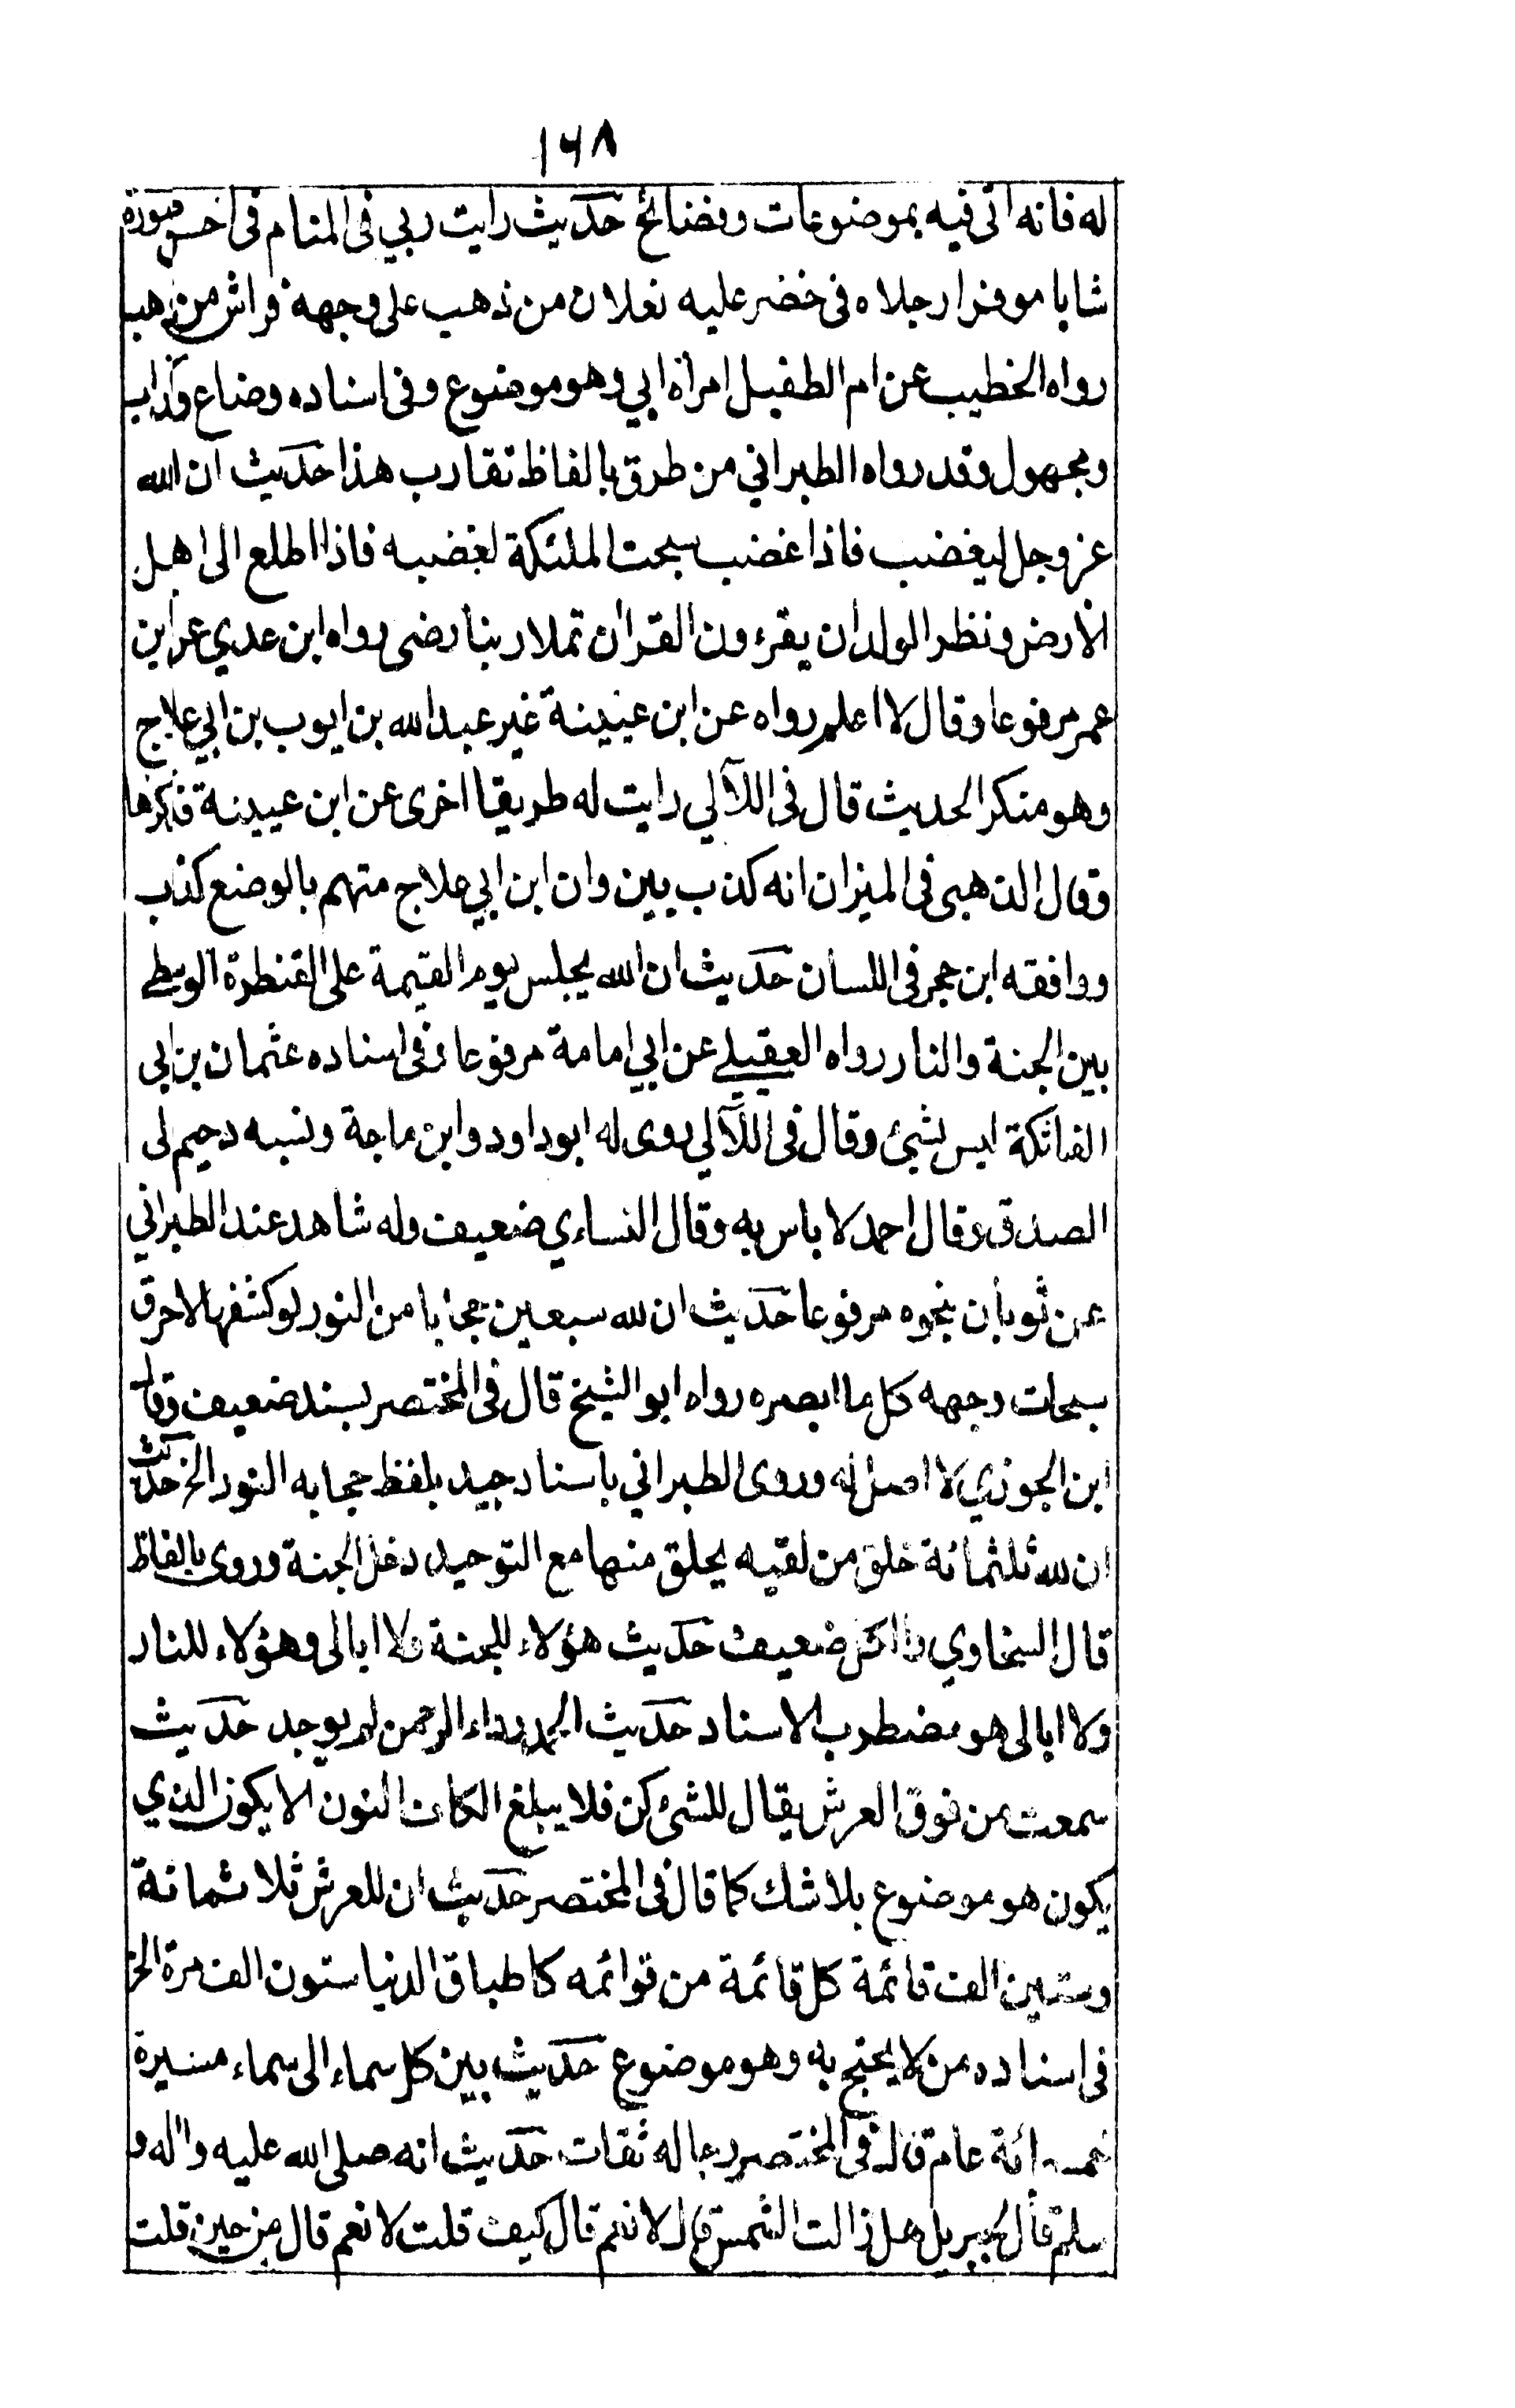 ١٦٨
له فانه اتى فيه بموضوعات وفضائح حديث رايت ربي فى المنام فى احسن صورة
شابا موفرا رجلاه فى خضر عليه نعلان من ذهب على وجهه فراش من ذهب
رواه الخطيب عن ام الطفيل امراة ابي وهو موضوع وفى اسناده وضاع وكذاب
ومجهول وقد رواه الطبراني من طرق بالفاظ تقارب هذا حديث ان الله
عز وجل ليغضب فاذا غضب سبحت الملئكة لغضبه فاذا اطلع الى اهل
الارض ونظر الولدان يقرءون القران تملا ربنا رضى رواه ابن عدي عن ابن
عمر مرفوعا وقال لا اعلم رواه عن ابن عيينة غير عبدالله بن ايوب بن ابي علاج
وهو منكر الحديث قال فى اللآلي رايت له طريقا اخرى عن ابن عيينة فذكرها
وقال الذهبى فى الميزان انه كذب بين وان ابن ابي علاج متهم بالوضع كذاب
ووافقه ابن حجر فى اللسان حديث ان الله يجلس يوم القيمة على القنطرة الوسطى
بين الجنة والنار رواه العقيلي عن ابي امامة مرفوعا وفى اسناده عثمان بن ابى
الفاتكة ليس بشئ وقال فى اللآلي روى له ابوداود وابن ماجة ونسبه دحيم لى
الصدق وقال احمد لا باس به وقال النساءي ضعيف وله شاهد عند الطبراني
عن ثوبان بنحوه مرفوعا حديث ان لله سبعين حجابا من النور لو كشفها لاحرق
سبحات وجهه كل ما ابصره رواه ابو الشيخ قال فى المختصر بسند ضعيف وقال
ابن الجوزي لا اصل له وروى الطبراني باسناد جيد بلفظ حجابه النور الخ حديث
ان لله ثلثمائة خلق من لقيه بخلق منها مع التوحيد دخل الجنة وروى بالفاظ
قال السخاوي والكل ضعيف حديث هؤلاء للجنة ولا ابالى وهؤلاء للنار
ولا ابالى هو مضطرب الاسناد حديث الحمد رداء الرحمن لم يوجد حديث
سمعت من فوق العرش يقال للشئ كن فلا يبلغ الكاف النون الا يكون الذي
يكون هو موضوع بلا شك كما قال فى المختصر حديث ان للعرش ثلاثمائة
وستين الف قائمة كل قائمة من قوائمه كاطباق الدنيا ستون الف مرة الخ
فى اسناده من لا يحتج به وهو موضوع حديث بين كل سماء الى سماء مسيرة
خمسمائة عام قال فى المختصر رجاله ثقات حديث انه صلى الله عليه واله و
سلم قال لجبريل هل زالت الشمس قال لا نعم قال كيف قلت لا نعم قال من حين قلت